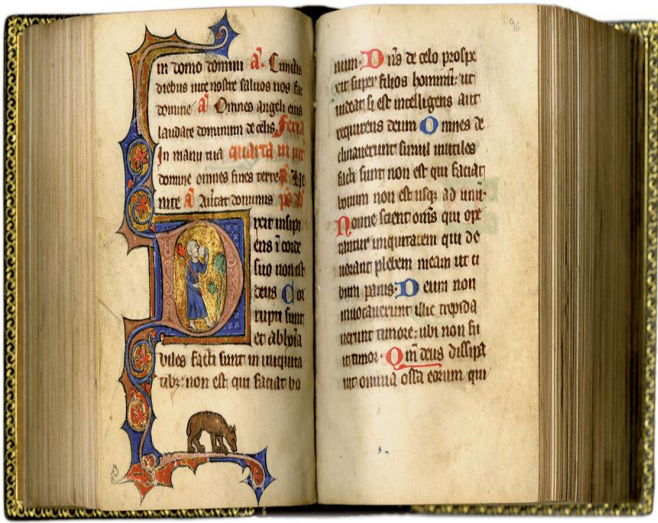 in domo domini a. Cunctis
diebus uite nostre saluos nos fac
domine a Omnes angeli eius
laudate dominum de celis. Feria
In manu tua quarta in
domine omnes fines terre
a Auertat dominus
Dixit insipi
ens i corde
suo non est
deus Cor
rupti sunt
et abhoīa
biles facti sunt in iniquita
tibz: non est qui faciat bo
96
num. Dñs de celo prospe
xit super filios hominū: ut
uideat si est intelligens aut
requirens deum Omnes de
clinauerunt simul inutiles
facti sunt non est qui faciat
bonum non est usqz ad unū.
Nonne scient oms qui ope
rantur iniquitatem qui de
uorant plebem meam ut ci
bum panis: Deum non
inuocauerunt illic trepida
uerunt timore: ubi non fu
it timor. Qm̄ deus dissipa
uit omnia ossa eorum qui